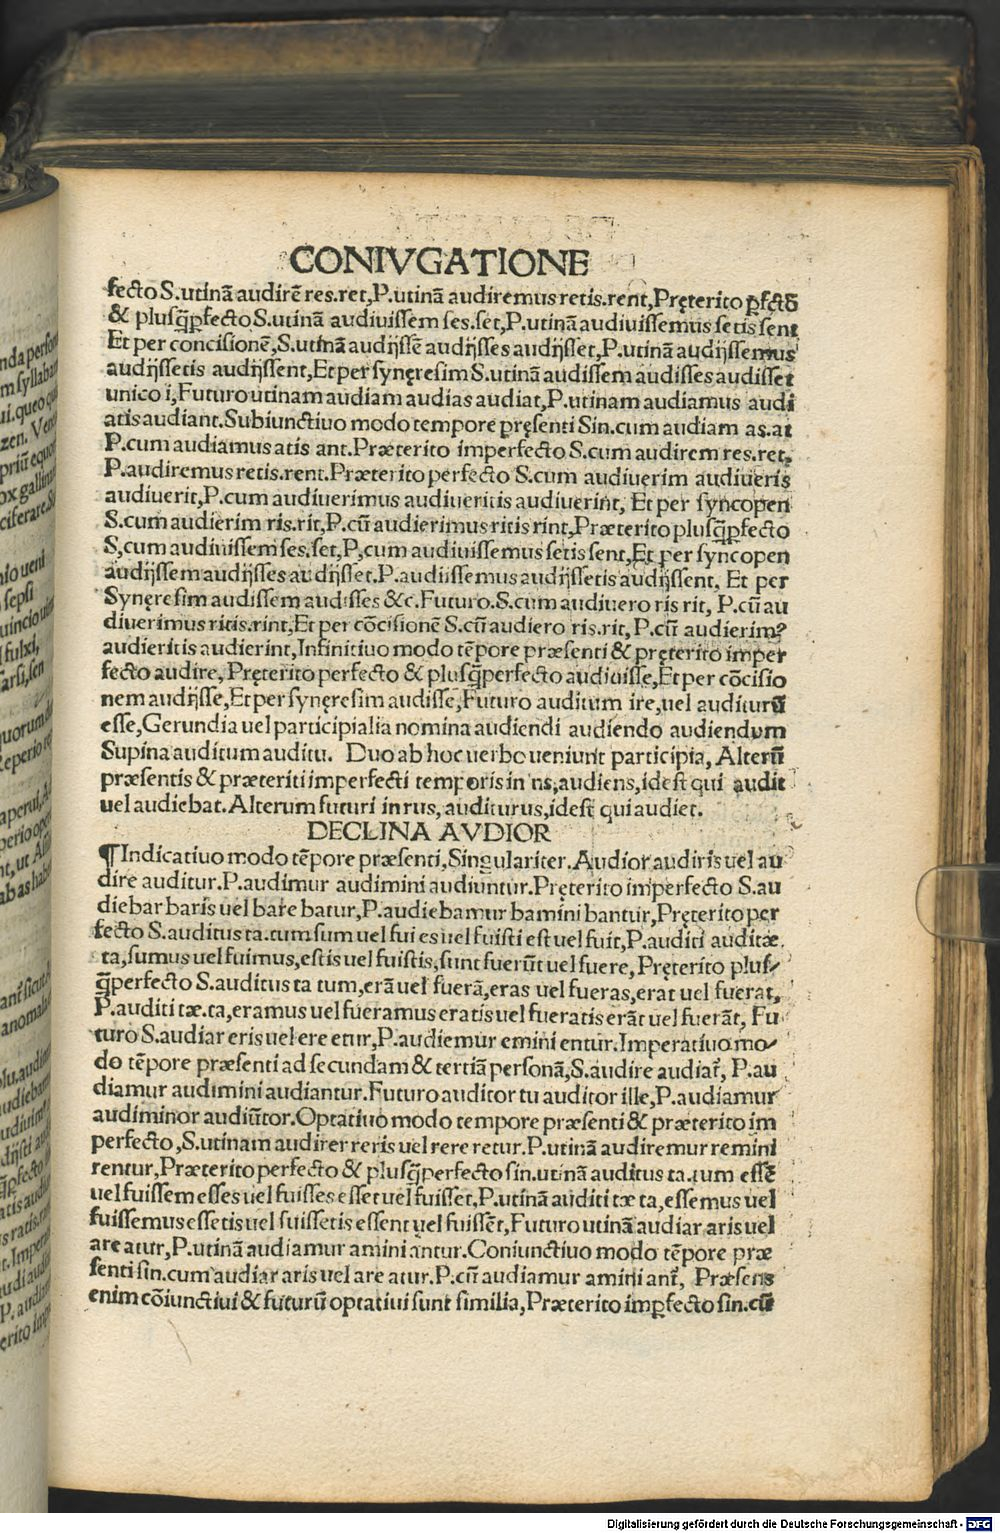 CONIVGATIONE
fecto S.utinā audirē res.ret,P.utinā audiremus retis.rent,Pręterito ꝑfectō
& plusq̄ꝑfecto S.utinā audiuissem ses.set,P.utinā audiuissemus setis sent
Et per concisionē,S.utinā audijssē audijsses audijsset,P.utinā audijssemus
audijssetis audijssent,Et per synęresim S.utinā audissem audisses audisset
unico i,Futuro utinam audiam audias audiat,P.utinam audiamus audi
atis audiant.Subiunctiuo modo tempore pręsenti Sin.cum audiam as.at
P.cum audiamus atis ant.Præterito imperfecto S.cum audirem res.ret,
P.audiremus retis.rent.Præterito perfecto S.cum audiuerim audiueris
audiuerit,P.cum audiuerimus audiueritis audiuerint, Et per syncopen
S.cum audierim ris.rit,P.cū audierimus ritis rint,Præterito plusq̄ꝑfecto
S,cum audiuissem ses,set,P,cum audiuissemus setis sent,Et per syncopen
audijssem audijsses audijsset.P.audiissemus audijssetis audijssent, Et per
Synęresim audissem audisses &c.Futuro.S.cum audiuero ris rit, P.cū au
diuerimus ritis.rint,Et per cōcisionē S.cū audiero ris.rit, P.cū audierim?
audieritis audierint,Infinitiuo modo tēpore præsenti & pręterito imper
fecto audire, Pręterito perfecto & plusq̄perfecto audiuisse,Et per cōcisio
nem audijsse,Et per synęresim audisse,Futuro auditum ire,uel auditurū
esse,Gerundia uel participialia nomina audiendi audiendo audiendum
Supina auditum auditu. Duo ab hoc uerbo ueniunt participia, Alterū
præsentis & præteriti imperfecti temporis in ns,audiens,idest qui audit
uel audiebat.Alterum futuri in rus, auditurus,idest qui audiet.
DECLINA AVDIOR
¶Indicatiuo modo tēpore præsenti,Singulariter.Audior audiris uel au
dire auditur.P.audimur audimini audiuntur.Pręterito imperfecto S.au
diebar baris uel bare batur,P.audiebamur bamini bantur,Pręterito per
fecto S.auditus ta.tum sum uel fui es uel fuisti est uel fuit,P.auditi auditæ.
ta,sumus uel fuimus,estis uel fuistis,sunt fuerūt uel fuere,Pręterito plus-
q̄perfecto S.auditus ta tum,erā uel fuerā,eras uel fueras,erat uel fuerat,
P.auditi tæ.ta,eramus uel fueramus eratis uel fueratis erāt uel fuerāt, Fu
turo S.audiar eris uel ere etur,P.audiemur emini entur.Imperatiuo mo-
do tēpore præsenti ad secundam & tertiā personā,S.audire audiat᷑, P.au
diamur audimini audiantur.Futuro auditor tu auditor ille,P.audiamur
audiminor audiūtor.Optatiuo modo tempore præsenti & præterito im
perfecto,S.utinam audirer reris uel rere retur.P.utinā audiremur remini
rentur,Præterito perfecto & plusq̄perfecto sin.utinā auditus ta.tum essē
uel fuissem esses uel fuisses esset uel fuisset,P.utinā auditi tæ ta,essemus uel
fuissemus essetis uel fuissetis essent uel fuissēt,Futuro utinā audiar aris uel
are atur,P.utinā audiamur amini antur.Coniunctiuo modo tēpore præ
senti sin.cum audiar aris uel are atur.P.cū audiamur amini ant᷑, Præsens
enim cōiunctiui & futurū optatiui sunt similia,Præterito imꝑfecto sin.cū
Digitalisierung gefördert durch die Deutsche Forschungsgemeinschaft - DFG